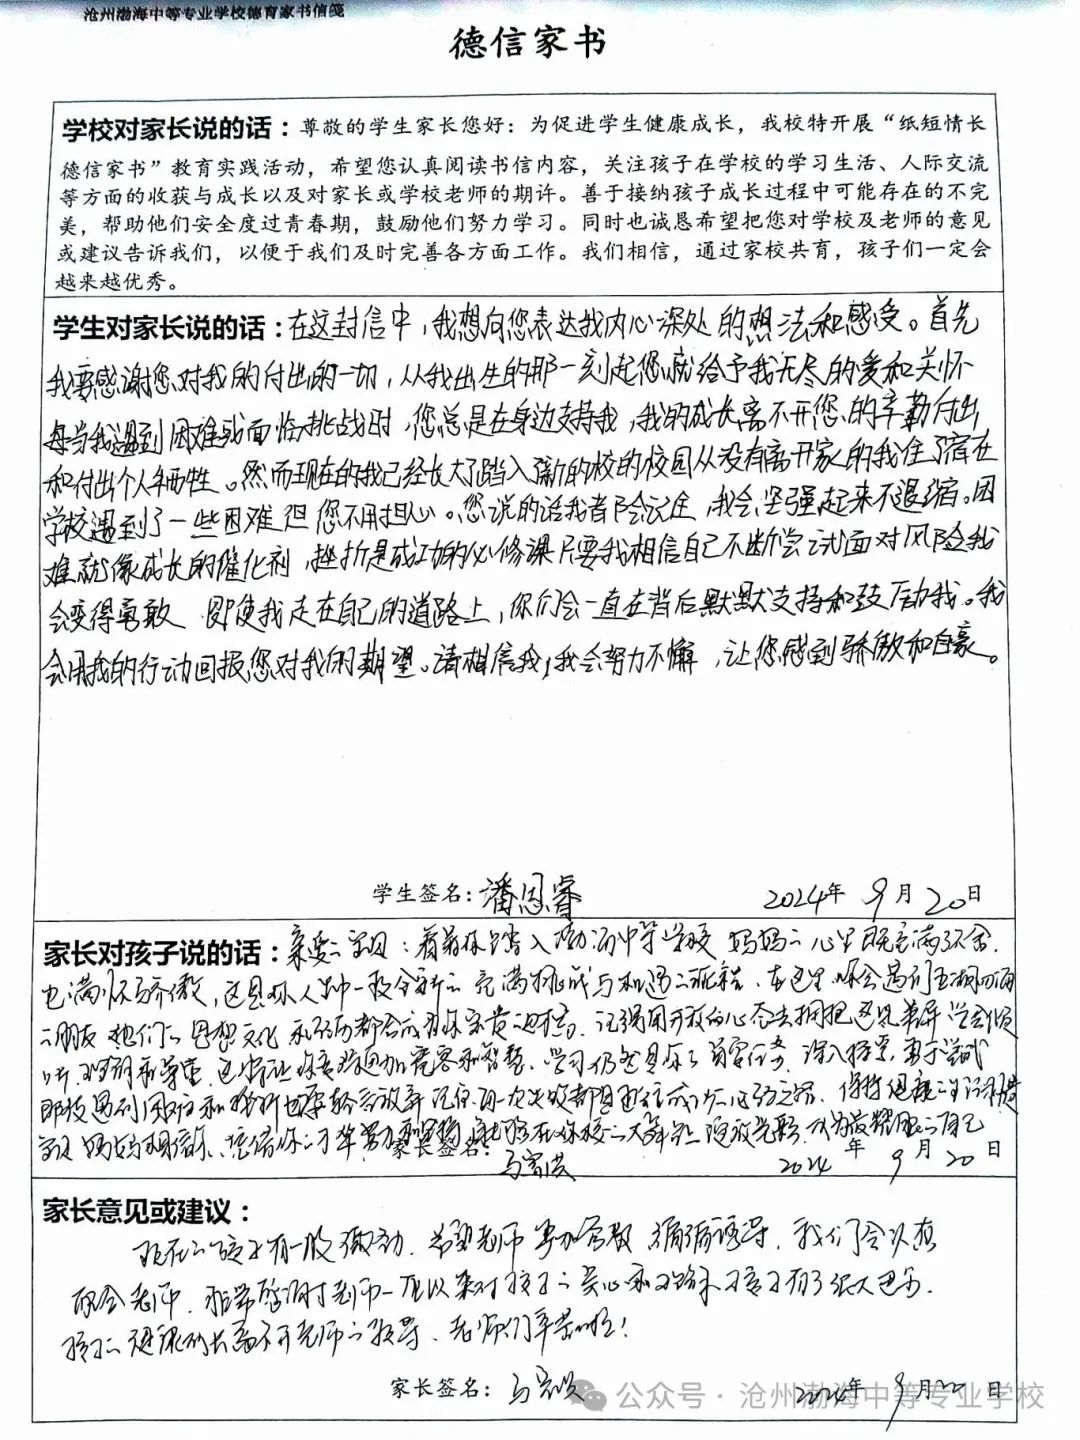 沧州渤海中等专业学校德育家书信笺
德信家书
学校对家长说的话：尊敬的学生家长您好：为促进学生健康成长，我校特开展“纸短情长
德信家书”教育实践活动，希望您认真阅读书信内容，关注孩子在学校的学习生活、人际交流
等方面的收获与成长以及对家长或学校老师的期许。善于接纳孩子成长过程中可能存在的不完
美，帮助他们安全度过青春期，鼓励他们努力学习。同时也诚恳希望把您对学校及老师的意见
或建议告诉我们，以便于我们及时完善各方面工作。我们相信，通过家校共育，孩子们一定会
越来越优秀。
学生对家长说的话：在这封信中，我想向您表达我内心深处的想法和感受。首先
我要感谢您对我的付出的一切，从我出生的那一刻起您就给予我无尽的爱和关怀
每当我遇到困难或面临挑战时，您总是在身边支持我，我的成长离不开您的辛勤付出
和付出个人牺牲。然而现在的我已经长大了踏入了新的校的校园从没有离开家的我住了宿在
学校遇到了一些困难但您不用担心。您说的话我都会记住，我会坚强起来不退缩。困
难就像成长的催化剂，挫折是成功的必修课只要我相信自己不断尝试面对风险我
会变得勇敢 即使我走在自己的道路上，你们会一直在背后默默支持和鼓励我。我
会用我的行动回报您对我的期望。请相信我，我会努力不懈，让您感到骄傲和自豪。
学生签名：潘恩睿 2024年9月20日
家长对孩子说的话：亲爱二宝贝：看着你踏入渤海中等学校 妈妈二心里既充满了不舍.
也满怀骄傲，这是你人生中一段全新二充满挑战与机遇二旅程. 在这里你会遇到五湖四海
二朋友 他们二思想文化 和经历都会成为你宝贵二 记得用开放的心态去拥抱这些差异 学会倾
听、理解和尊重，这将让你变得更加宽容和智慧. 学习仍然是你二首要任务 深入探索,勇于尝试
即使遇到困难和挫折也不要轻言放弃 记住每一次失败都是通往成功二必经之路. 保持
妈妈相信你、凭借你二才华努力和 在你 二大舞台上绽放光彩,成为最耀眼二自己
家长签名： 2024年9月20日
家长意见或建议：
现在二孩子有一股 希望老师 严加管教 循循诱导. 我们会认真
配合老师. 非常感谢老师一直以来对孩子二关心和 孩子有了很大进步.
孩子二 成长离不开老师二教导、老师们辛苦啦!
家长签名： 2024年9月20日
公众号·沧州渤海中等专业学校